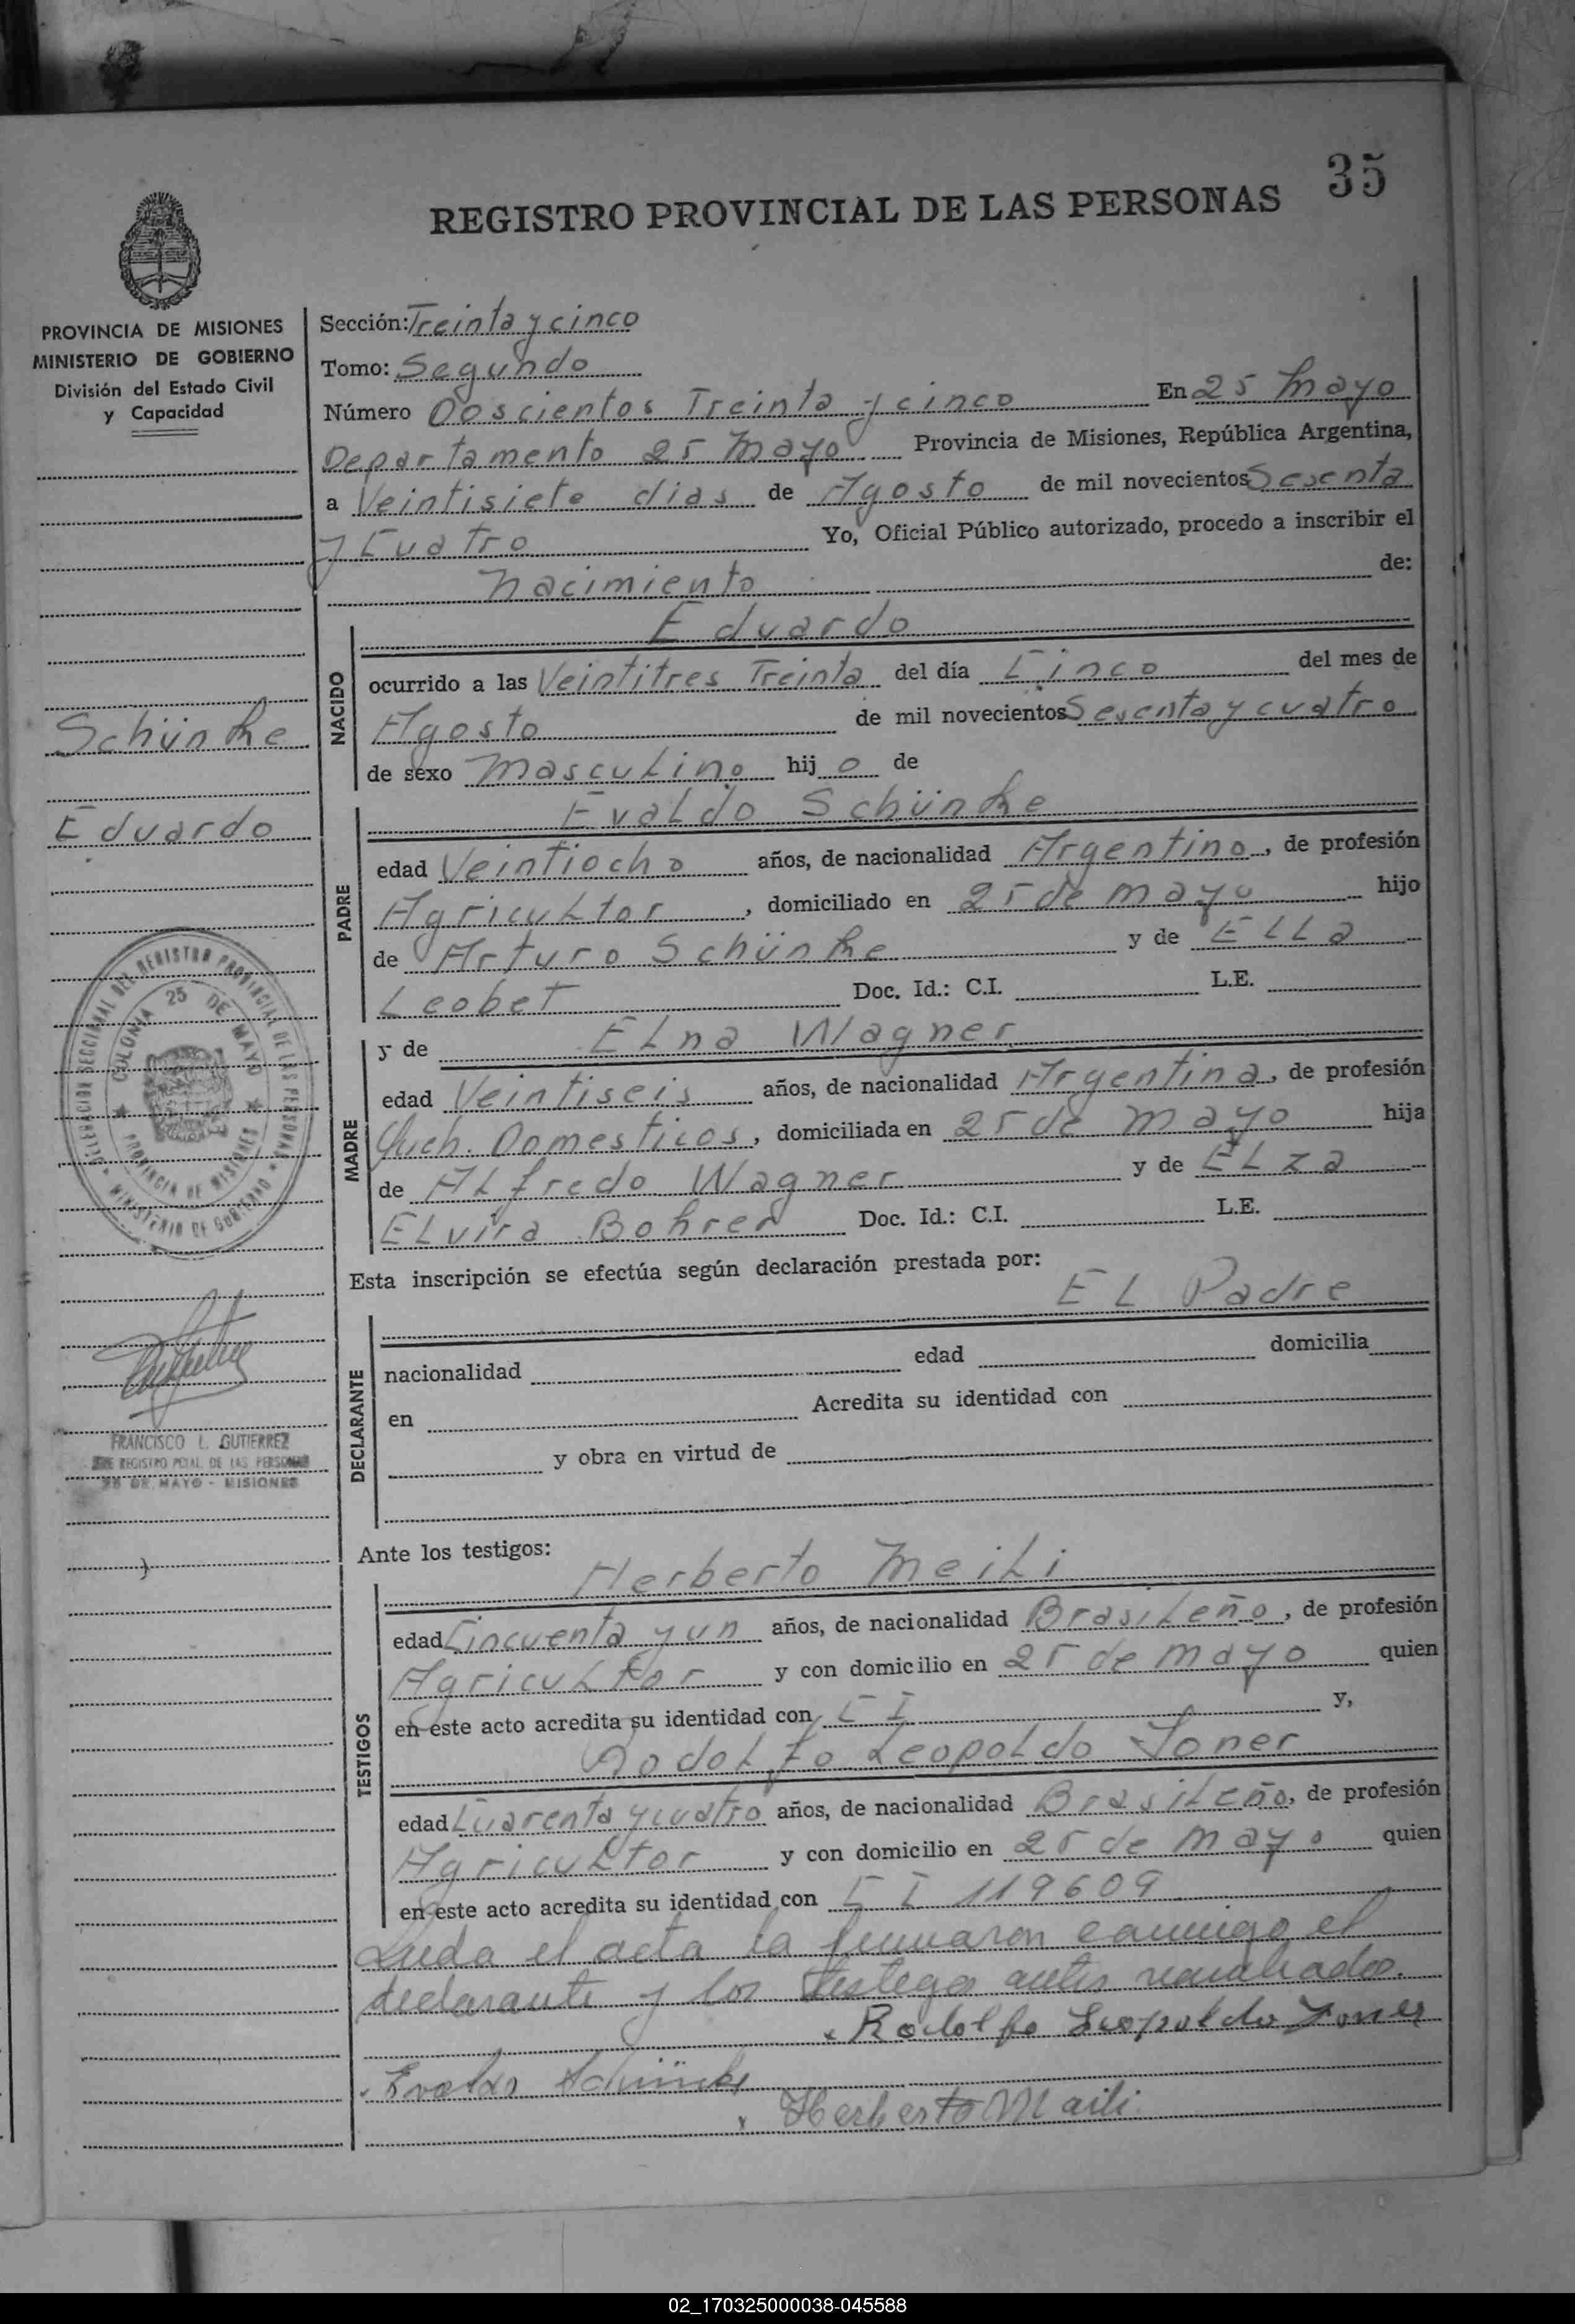 35
REGISTRO PROVINCIAL DE LAS PERSONAS
PROVINCIA DE MISIONES
MINISTERIO DE GOBIERNO
División del Estado Civil
y Capacidad
Schünke
Eduardo
DELEGACIÓN SECCIONAL DEL REGISTRO PROVINCIAL DE LAS PERSONAS
COLONIA 25 DE MAYO
PROVINCIA DE MISIONES
MINISTERIO DE GOBIERNO
FRANCISCO L. GUTIERREZ
REGISTRO PCIAL. DE LAS PERSONAS
25 DE MAYO - MISIONES
Sección: Treinta y cinco
Tomo: Segundo
Número Doscientos Treinta y cinco En 25 Mayo
Departamento 25 Mayo Provincia de Misiones, República Argentina,
a Veintisiete dias de Agosto de mil novecientos Sesenta
y Cuatro Yo, Oficial Público autorizado, procedo a inscribir el
Nacimiento de:
NACIDO
Eduardo
ocurrido a las Veintitres Treinta del día Cinco del mes de
Agosto de mil novecientos Sesenta y cuatro
de sexo Masculino hijo de
PADRE
Evaldo Schünke
edad Veintiocho años, de nacionalidad Argentino, de profesión
Agricultor, domiciliado en 25 de Mayo hijo
de Arturo Schünke y de Ella
Leobet Doc. Id.: C.I. L.E.
MADRE
y de Elna Wagner
edad Veintiseis años, de nacionalidad Argentina, de profesión
Queh. Domesticos, domiciliada en 25 de Mayo hija
de Alfredo Wagner y de Elza
Elvira Bohrer Doc. Id.: C.I. L.E.
Esta inscripción se efectúa según declaración prestada por:
El Padre
DECLARANTE
nacionalidad edad domicilia
en Acredita su identidad con
y obra en virtud de
Ante los testigos:
TESTIGOS
Herberto Meili
edad Cincuenta y un años, de nacionalidad Brasileño, de profesión
Agricultor y con domicilio en 25 de Mayo quien
en este acto acredita su identidad con C I y,
Rodolfo Leopoldo Joner
edad Cuarenta y cuatro años, de nacionalidad Brasileño, de profesión
Agricultor y con domicilio en 25 de Mayo quien
en este acto acredita su identidad con C I 119609
Leida el acta la firmaron conmigo el
declarante y los testigos antes nombrados.
Rodolfo Leopoldo Joner
Evaldo Schünke
Herberto Maili
02_170325000038-045588